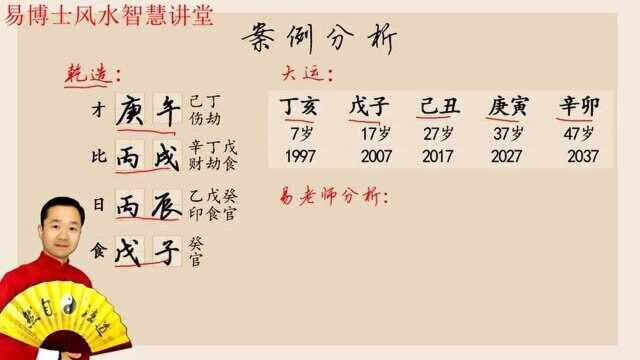 易博士风水智慧讲堂
案例分析
乾造：
才 庚 午 己丁
伤劫
比 丙 戌 辛丁戊
财劫食
日 丙 辰 乙戊癸
印食官
食 戊 子 癸
官
大运：
丁亥 戊子 己丑 庚寅 辛卯
7岁 17岁 27岁 37岁 47岁
1997 2007 2017 2027 2037
易老师分析：